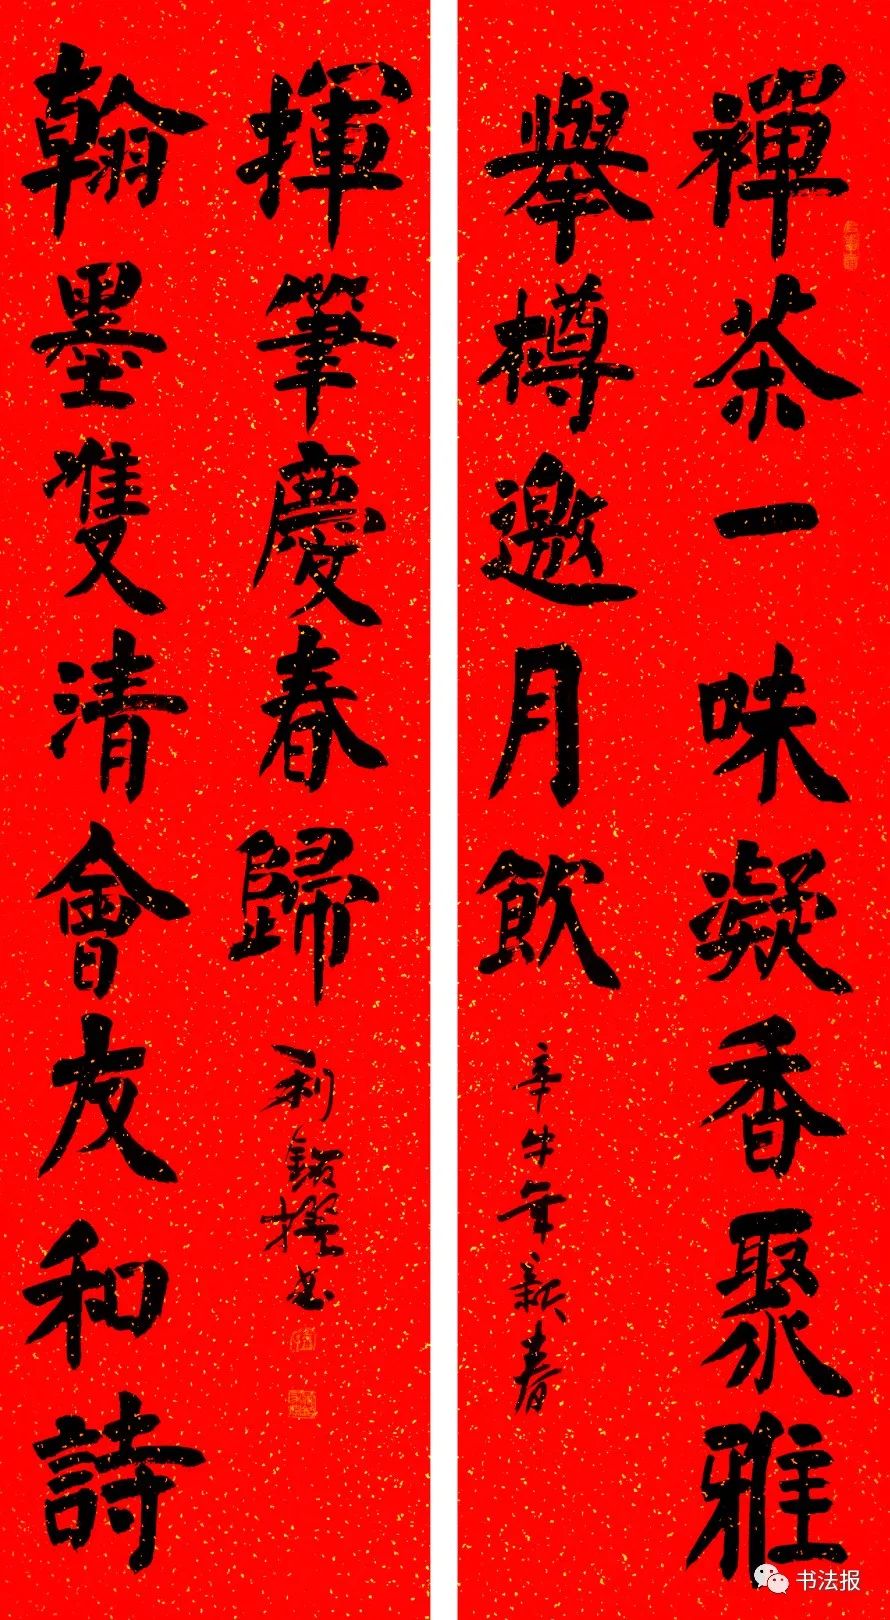 禪茶一味凝香聚雅
舉樽邀月飲
辛牛年新春
翰墨雙清會友和詩
揮筆慶春歸
利 撰书
书法报